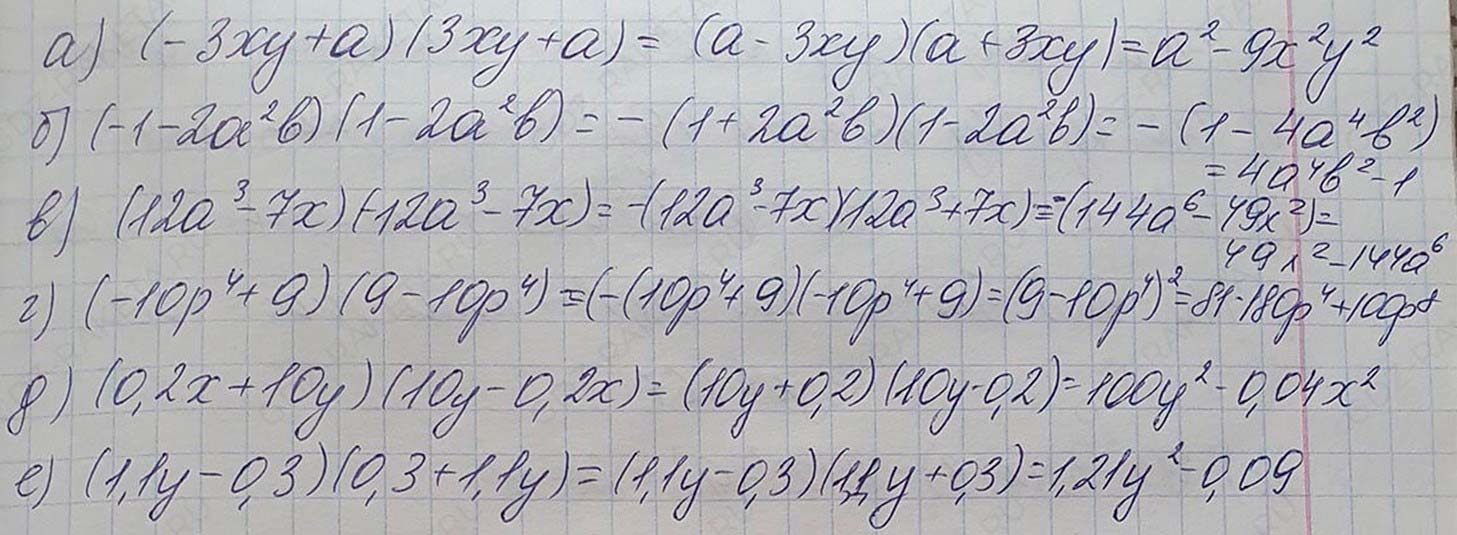 а) (-3xy+a)(3xy+a) = (a-3xy)(a+3xy) = a²-9x²y²
б) (-1-2a²b)(1-2a²b) = -(1+2a²b)(1-2a²b) = -(1-4a⁴b²)
= 4a⁴b²-1
в) (12a³-7x)(-12a³-7x) = -(12a³-7x)(12a³+7x) = -(144a⁶-49x²) =
49x²-144a⁶
г) (-10p⁴+9)(9-10p⁴) = (-(10p⁴+9)(-10p⁴+9) = (9-10p⁴)² = 81-180p⁴+100p⁸
д) (0,2x+10y)(10y-0,2x) = (10y+0,2)(10y-0,2) = 100y²-0,04x²
е) (1,1y-0,3)(0,3+1,1y) = (1,1y-0,3)(1,1y+0,3) = 1,21y²-0,09